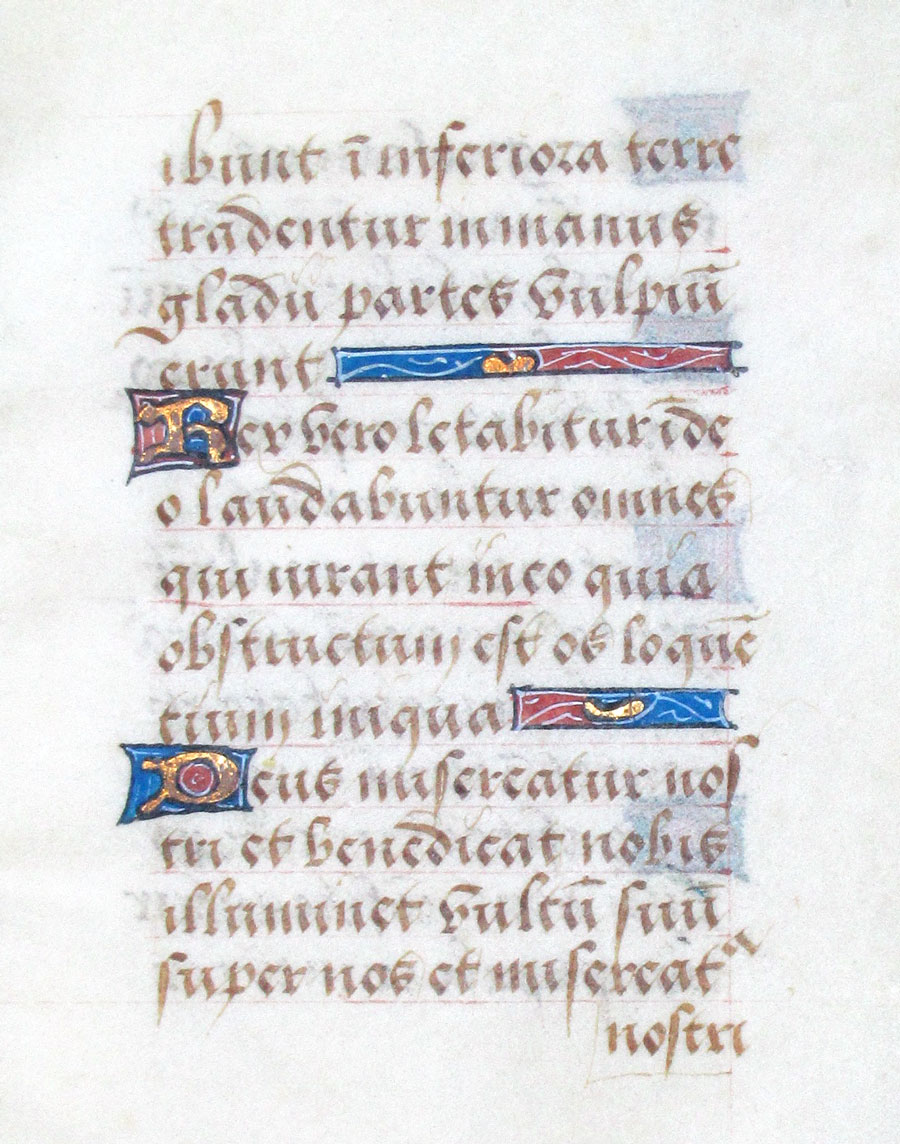 ibunt ī inferiora terre
tradentur in manus
gladii partes vulpiū
erunt
Rex vero letabitur ī de
o laudabuntur omnes
qui iurant in eo quia
obstructum est os loquē
tium iniqua
Deus misereatur nos
tri et benedicat nobis
illuminet vultū suū
super nos et misereatᵘ
nostri